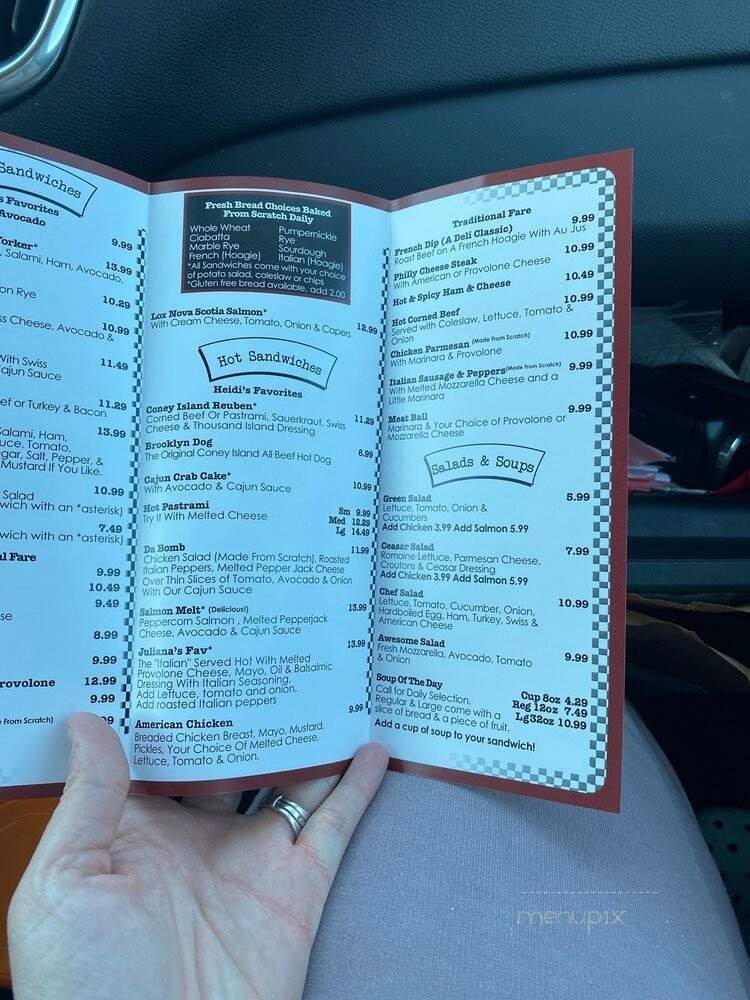 Sandwiches
s Favorites
Avocado
Yorker* 9.99
Salami, Ham, Avocado, 13.99
on Rye 10.29
ss Cheese, Avocado & 10.99
With Swiss
Cajun Sauce 11.49
ef or Turkey & Bacon 11.29
Salami, Ham, 13.99
uce, Tomato,
egar, Salt, Pepper, &
Mustard If You Like.
Salad 10.99
wich with an *asterisk)
7.49
wich with an *asterisk)
al Fare
9.99
10.49
9.49
se
8.99
9.99
Provolone 12.99
9.99
e From Scratch)
Fresh Bread Choices Baked
From Scratch Daily
Whole Wheat Pumpernickle
Ciabatta Rye
Marble Rye Sourdough
French (Hoagie) Italian (Hoagie)
*All Sandwiches come with your choice
of potato salad, coleslaw or chips
*Gluten free bread available, add 2.00
Lox Nova Scotia Salmon*
With Cream Cheese, Tomato, Onion & Capers 12.99
Hot Sandwiches
Heidi's Favorites
Coney Island Reuben*
Corned Beef Or Pastrami, Sauerkraut, Swiss 11.29
Cheese & Thousand Island Dressing
Brooklyn Dog
The Original Coney Island All Beef Hot Dog 6.99
Cajun Crab Cake*
With Avocado & Cajun Sauce 10.99
Hot Pastrami Sm 9.99
Try It With Melted Cheese Med 12.29
Lg 14.49
Da Bomb 11.99
Chicken Salad (Made From Scratch), Roasted
Italian Peppers, Melted Pepper Jack Cheese
Over Thin Slices of Tomato, Avocado & Onion
With Our Cajun Sauce
Salmon Melt* (Delicious!) 13.99
Peppercorn Salmon , Melted Pepperjack
Cheese, Avocado & Cajun Sauce
Juliana's Fav* 13.99
The "Italian" Served Hot With Melted
Provolone Cheese, Mayo, Oil & Balsalmic
Dressing With Italian Seasoning.
Add Lettuce, tomato and onion.
Add roasted Italian peppers
American Chicken 9.99
Breaded Chicken Breast, Mayo, Mustard,
Pickles, Your Choice Of Melted Cheese,
Lettuce, Tomato & Onion.
Traditional Fare
French Dip (A Deli Classic) 9.99
Roast Beef on A French Hoagie With Au Jus
Philly Cheese Steak 10.99
With American or Provolone Cheese
Hot & Spicy Ham & Cheese 10.49
Hot Corned Beef 10.99
Served with Coleslaw, Lettuce, Tomato &
Onion
Chicken Parmesan (Made From Scratch) 10.99
With Marinara & Provolone
Italian Sausage & Peppers(Made From Scratch) 9.99
With Melted Mozzarella Cheese and a
Little Marinara
Meat Ball 9.99
Marinara & Your Choice of Provolone or
Mozzarella Cheese
Salads & Soups
Green Salad 5.99
Lettuce, Tomato, Onion &
Cucumbers
Add Chicken 3.99 Add Salmon 5.99
Ceasar Salad 7.99
Romaine Lettuce, Parmesan Cheese,
Croutons & Ceasar Dressing
Add Chicken 3.99 Add Salmon 5.99
Chef Salad 10.99
Lettuce, Tomato, Cucumber, Onion,
Hardboiled Egg, Ham, Turkey, Swiss &
American Cheese
Awesome Salad
Fresh Mozzarella, Avocado, Tomato 9.99
& Onion
Soup Of The Day Cup 8oz 4.29
Call for Daily Selection. Reg 12oz 7.49
Regular & Large come with a Lg32oz 10.99
slice of bread & a piece of fruit.
Add a cup of soup to your sandwich!
menupix